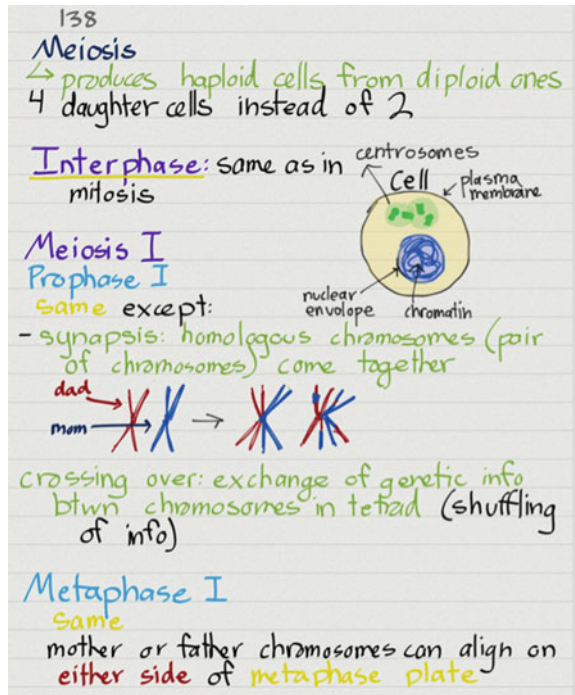 138
Meiosis
↳ produces haploid cells from diploid ones
4 daughter cells instead of 2
Interphase: same as in
mitosis
centrosomes
Cell
plasma
membrane
nuclear
envolope
chromatin
Meiosis I
Prophase I
same except:
- synapsis: homologous chromosomes (pair
of chromosomes) come together
dad
mom
crossing over: exchange of genetic info
btwn chromosomes in tetrad (shuffling
of info)
Metaphase I
same
mother or father chromosomes can align on
either side of metaphase plate